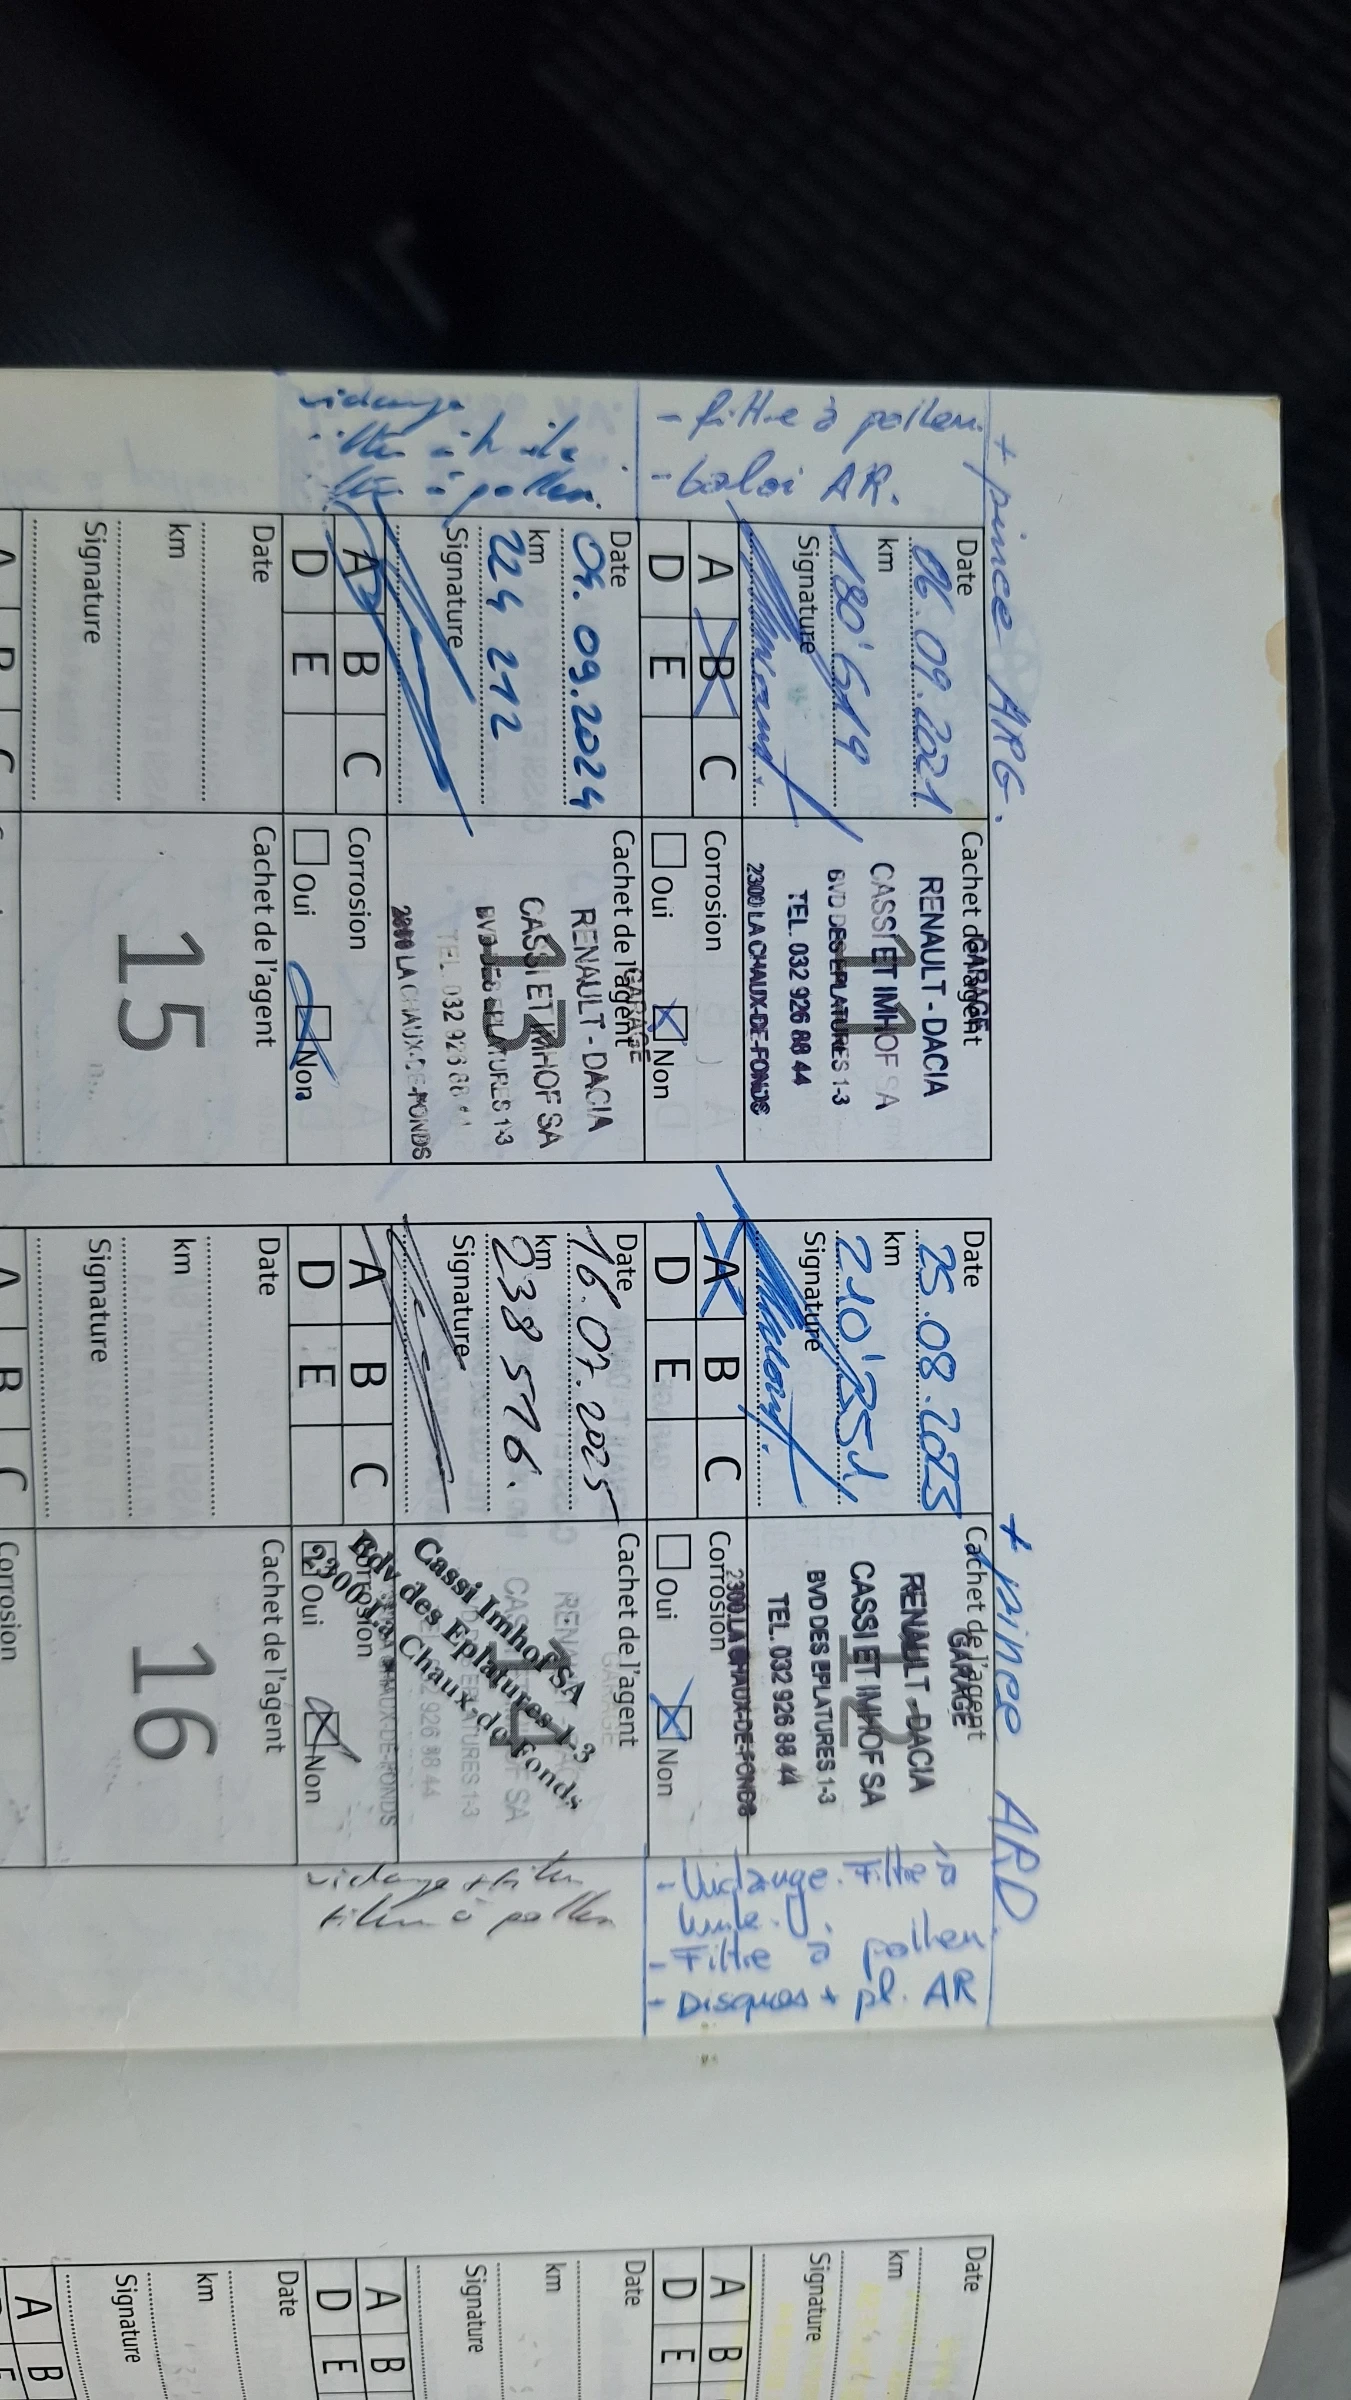 + pince ARG.
+ pince ARD.
- filtre à pollen.
- balai AR.
Date
06.09.2021
km
180'619
Signature
Cachet de l'agent
GARAGE
RENAULT - DACIA
CASSI ET IMHOF SA
BVD DES EPLATURES 1-3
TEL. 032 926 88 44
2300 LA CHAUX-DE-FONDS
11
A B C
D E
Corrosion
Oui Non
Date
25.08.2023
km
210'351
Signature
Cachet de l'agent
GARAGE
RENAULT - DACIA
CASSI ET IMHOF SA
BVD DES EPLATURES 1-3
TEL. 032 926 88 44
2300 LA CHAUX-DE-FONDS
12
A B C
D E
Corrosion
Oui Non
- Vidange. Filtre à
huile.
- Filtre à pollen
- Disques + pl. AR
vidange
filtre à huile
filtre à pollen.
Date
04.09.2024
km
224 212
Signature
Cachet de l'agent
GARAGE
RENAULT - DACIA
CASSI ET IMHOF SA
BVD DES EPLATURES 1-3
TEL. 032 926 88 44
2300 LA CHAUX-DE-FONDS
13
A B C
D E
Corrosion
Oui Non
Date
16.07.2025
km
238 516.
Signature
Cachet de l'agent
Cassi Imhof SA
Bdv des Eplatures 1-3
2300 La Chaux de Fonds
14
A B C
D E
Corrosion
Oui Non
vidange + filtre
filtre à pollen
Date
km
Signature
Cachet de l'agent
15
A B C
Date
km
Signature
Cachet de l'agent
16
A B C
Corrosion
Date
km
Signature
A B
D E
Date
km
Signature
A B
D E
Date
km
Signature
A B